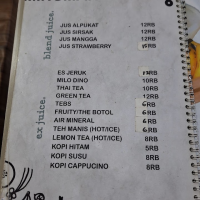 blend juice.
JUS ALPUKAT 12RB
JUS SIRSAK 12RB
JUS MANGGA 12RB
JUS STRAWBERRY
ex juice.
ES JERUK
MILO DINO 10RB
THAI TEA 10RB
GREEN TEA 12RB
TEBS 6RB
FRUITY/THE BOTOL 6RB
AIR MINERAL 6RB
TEH MANIS (HOT/ICE) 6RB
LEMON TEA (HOT/ICE) 8RB
KOPI HITAM 5RB
KOPI SUSU 8RB
KOPI CAPPUCINO 8RB